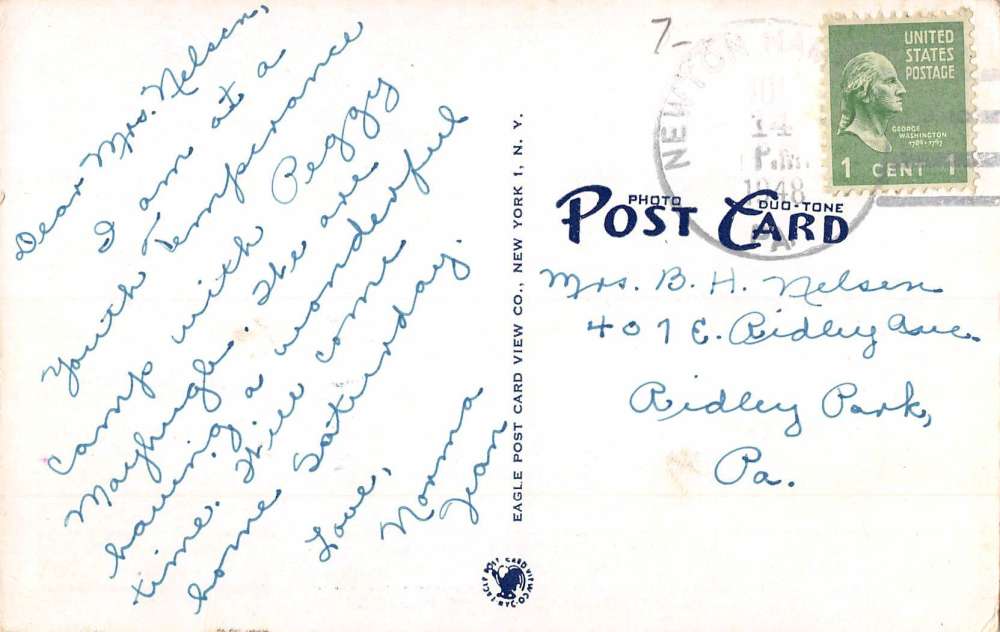 Dear Mrs. Nelsen,
I am at a
Youth Temperance
Camp with Peggy
Mayhugh. We are
having a wonderful
time. Will come
home Saturday.
Love,
Norma
Jean
EAGLE POST CARD VIEW CO., NEW YORK 1, N. Y.
7-
NEWTON HAM
14
P.M.
1948
PA.
UNITED
STATES
POSTAGE
GEORGE
WASHINGTON
1 CENT 1
PHOTO DUO-TONE
POST CARD
Mrs. B. H. Nelsen
407 E. Ridley Ave.
Ridley Park,
Pa.